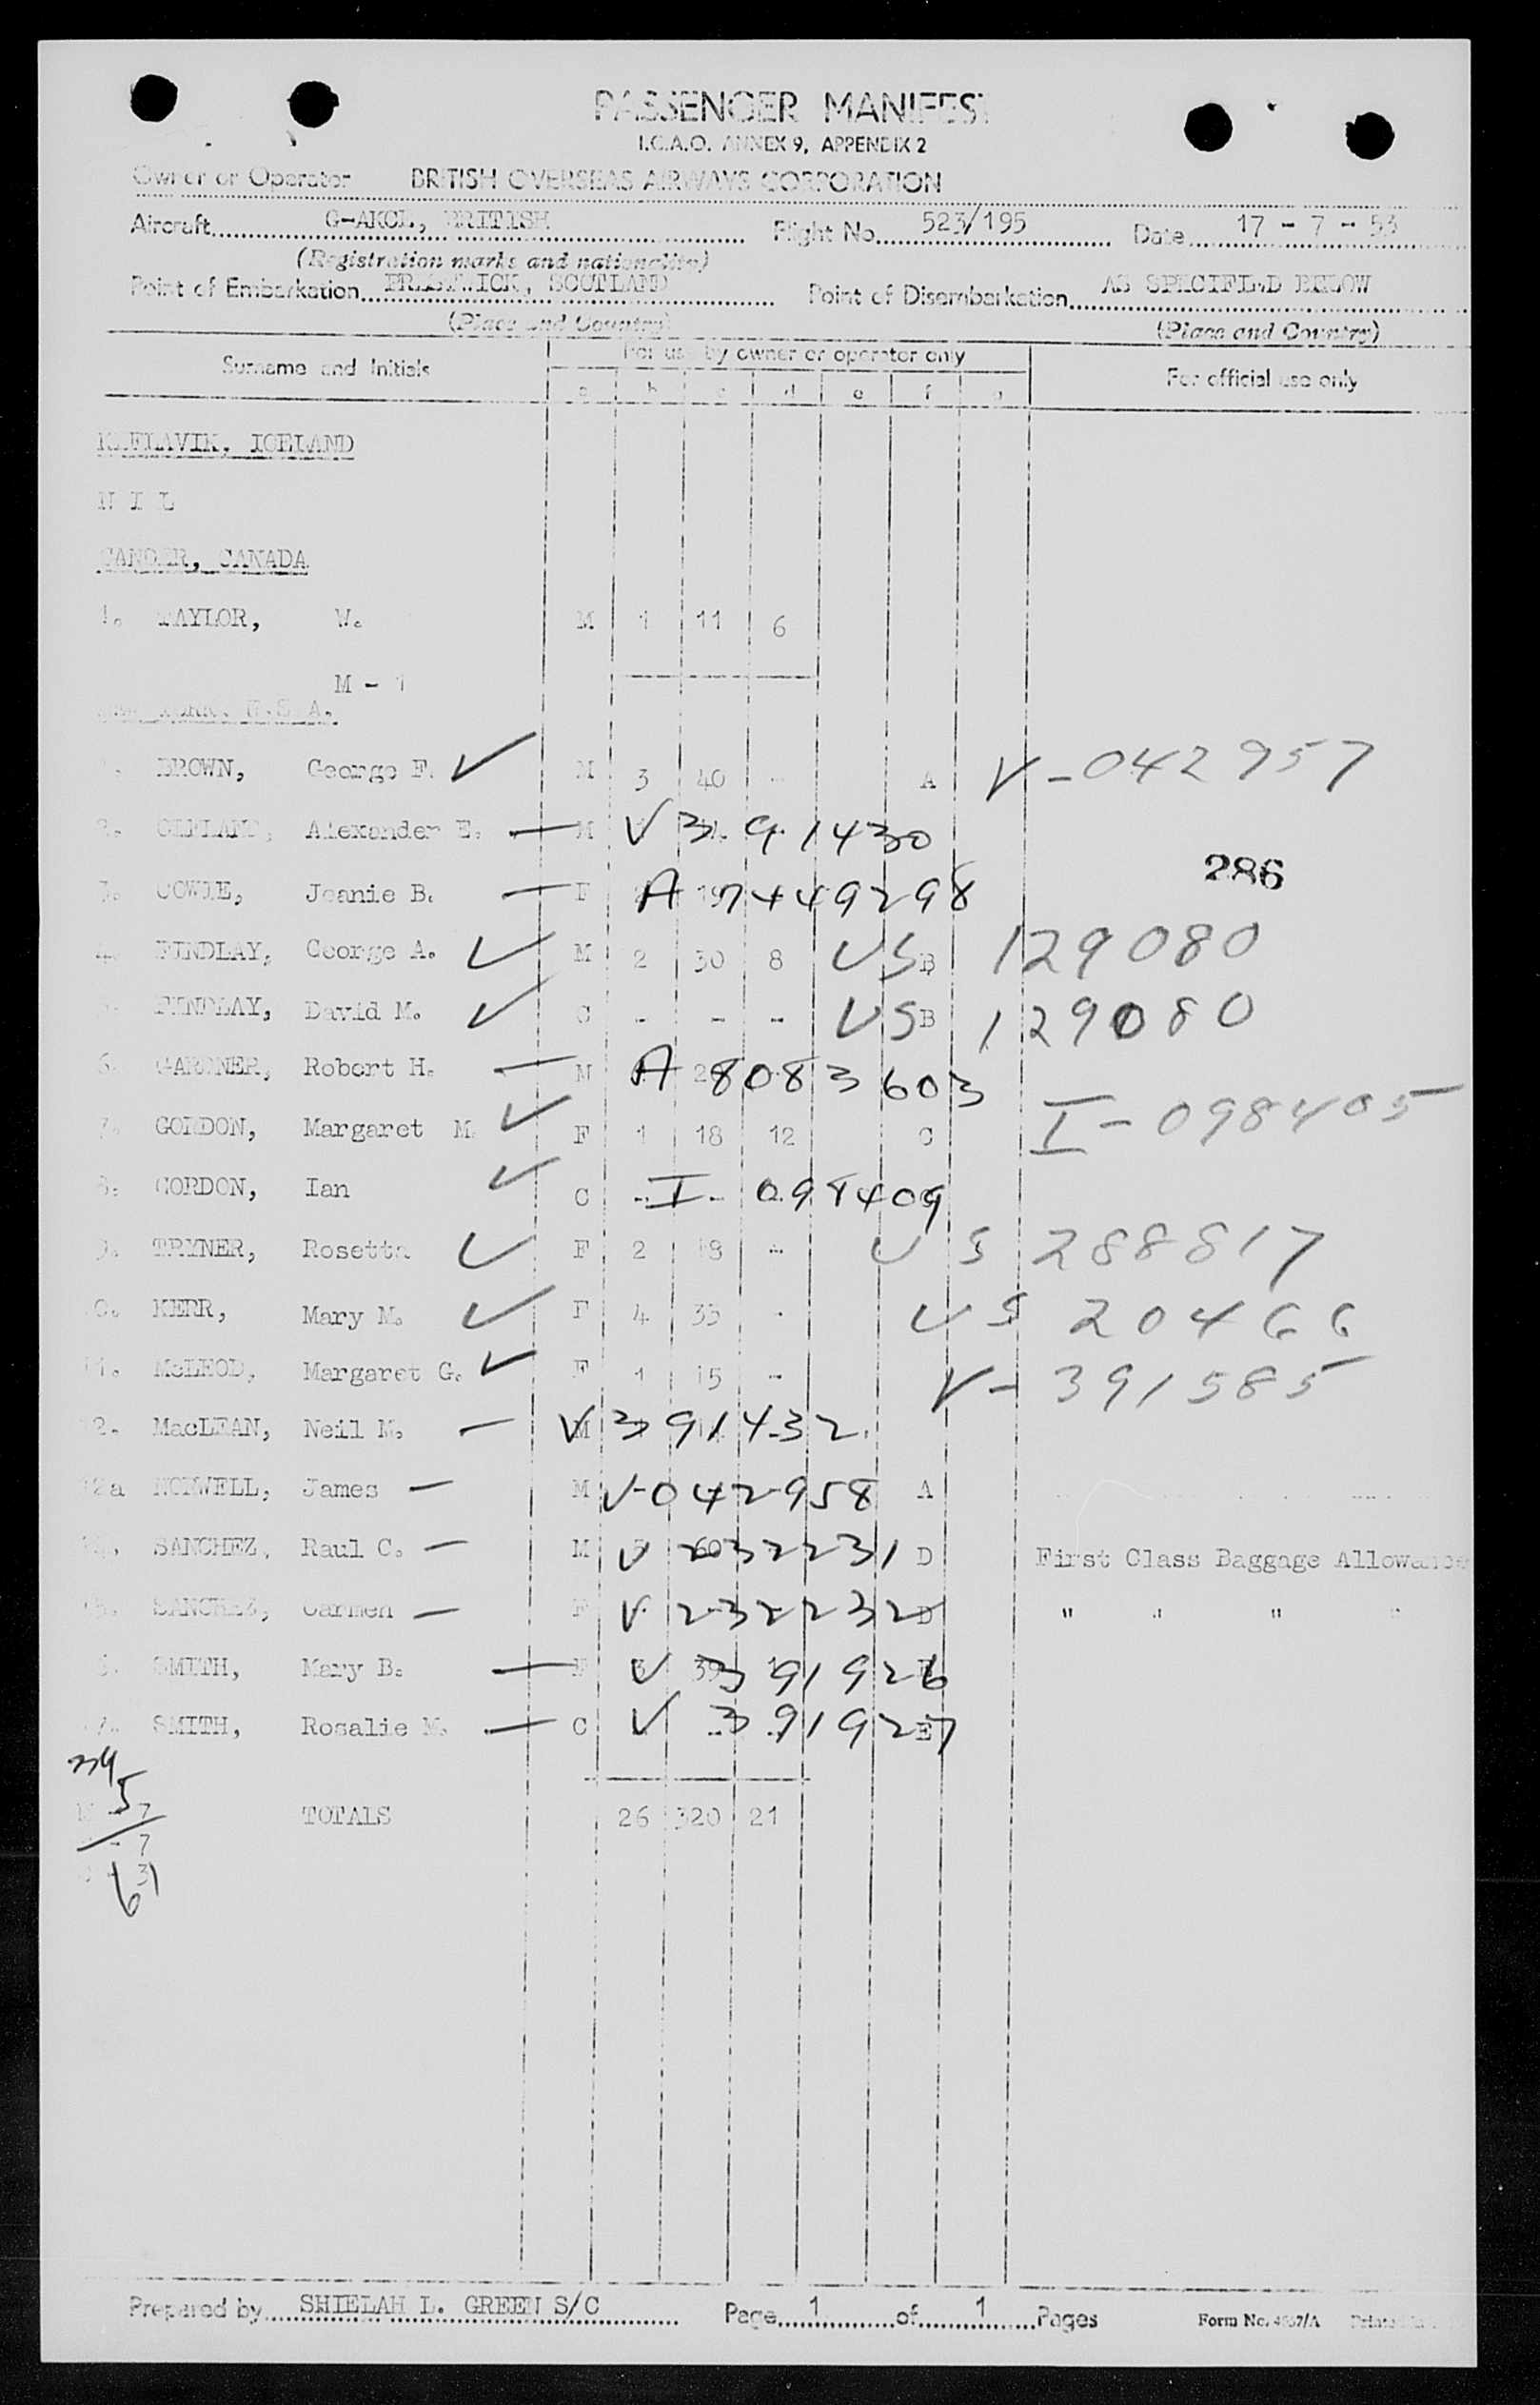 PASSENGER MANIFEST
I.C.A.O. ANNEX 9, APPENDIX 2
Owner or Operator BRITISH OVERSEAS AIRWAYS CORPORATION
Aircraft G-AKCL, BRITISH Flight No. 523/195 Date 17 - 7 - 53
(Registration marks and nationality)
Point of Embarkation PRESTWICK, SCOTLAND Point of Disembarkation AS SPECIFIED BELOW
(Place and Country) (Place and Country)
Surname and Initials For use by owner or operator only For official use only
a b c d e f g
KEFLAVIK, ICELAND
N I L
GANDER, CANADA
1. TAYLOR, W. M 1 11 6
M - 1
NEW YORK, U.S.A.
1. BROWN, George F. ✓ M 3 40 - A V-042957
2. Alexander E. — M V 391430
286
3. COWIE, Jeanie B. — F A 7449298
4. FINDLAY, George A. ✓ M 2 30 8 US B 129080
5. FINDLAY, David M. ✓ C - - - US B 129080
6. GARDNER, Robert H. — M A 8083603
7. GORDON, Margaret M. ✓ F 1 18 12 C I-098405
8. GORDON, Ian ✓ C I 098409
9. TRYNER, Rosetta ✓ F 2 18 - US 288817
10. KERR, Mary M. ✓ F 4 35 - US 20466
11. McLEOD, Margaret G. ✓ F 1 15 - V-391585
12. MacLEAN, Neil M. — M V 391432
12a NORWELL, James — M V-042958 A
14. SANCHEZ, Raul C. — M 60 V 232231 D First Class Baggage Allowance
15. SANCHEZ, Carmen — F V 232232 D " " " "
16. SMITH, Mary B. — F 3 39 V 391926
17. SMITH, Rosalie M. — C V 391927 E
TOTALS 26 320 21
M - 7
- 7
3
Prepared by SHIELAH L. GREEN S/C Page 1 of 1 Pages Form No.